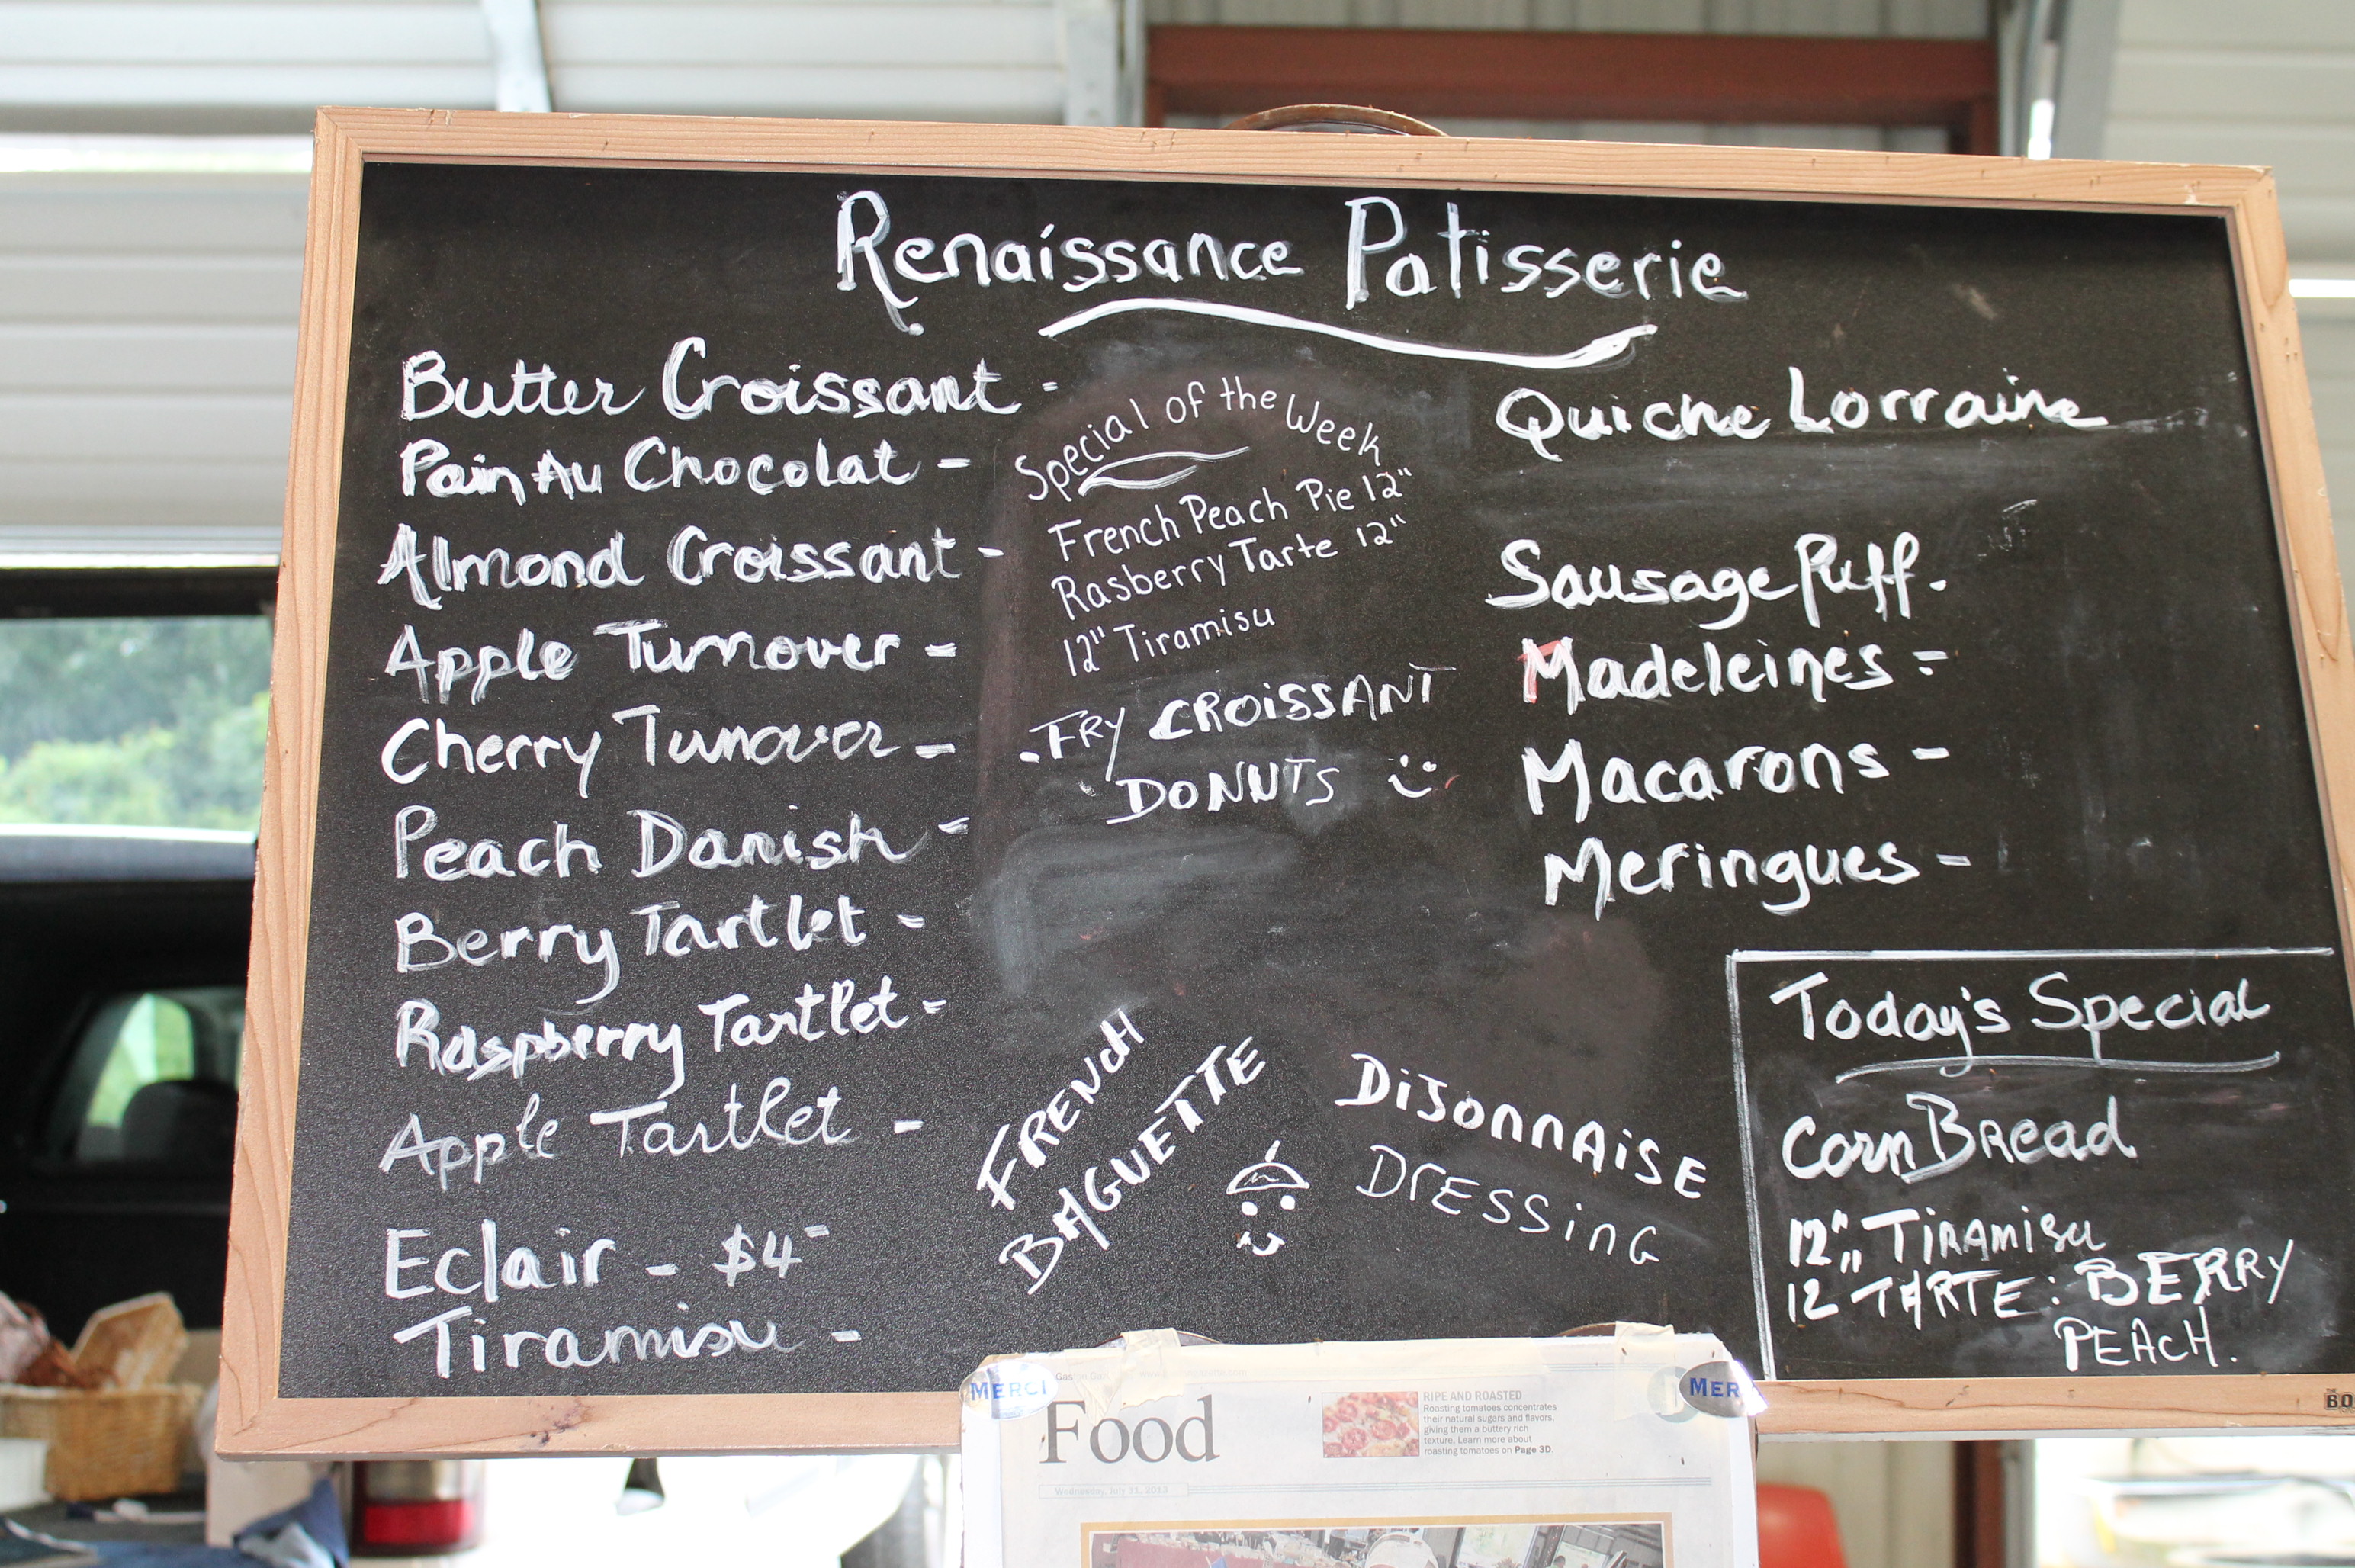 Renaissance Patisserie
Butter Croissant -
Pain Au Chocolat -
Almond Croissant -
Apple Turnover -
Cherry Tunover -
Peach Danish -
Berry Tartlet -
Raspberry Tartlet -
Apple Tartlet -
Eclair - $4-
Tiramisu -
Special of the Week
French Peach Pie 12"
Rasberry Tarte 12"
12" Tiramisu
.FRY CROISSANT
DONUTS
FRENCH
BAGUETTE
DIJONNAISE
DRESSING
Quiche Lorraine
Sausage Puff.
Madeleines =
Macarons -
Meringues -
Today's Special
Corn Bread
12" TIRAMISU
12" TARTE: BERRY
PEACH.
MERCI
MER
Food
RIPE AND ROASTED
Roasting tomatoes concentrates
their natural sugars and flavors,
giving them a buttery rich
texture. Learn more about
roasting tomatoes on Page 3D.
Wednesday, July 31, 2013